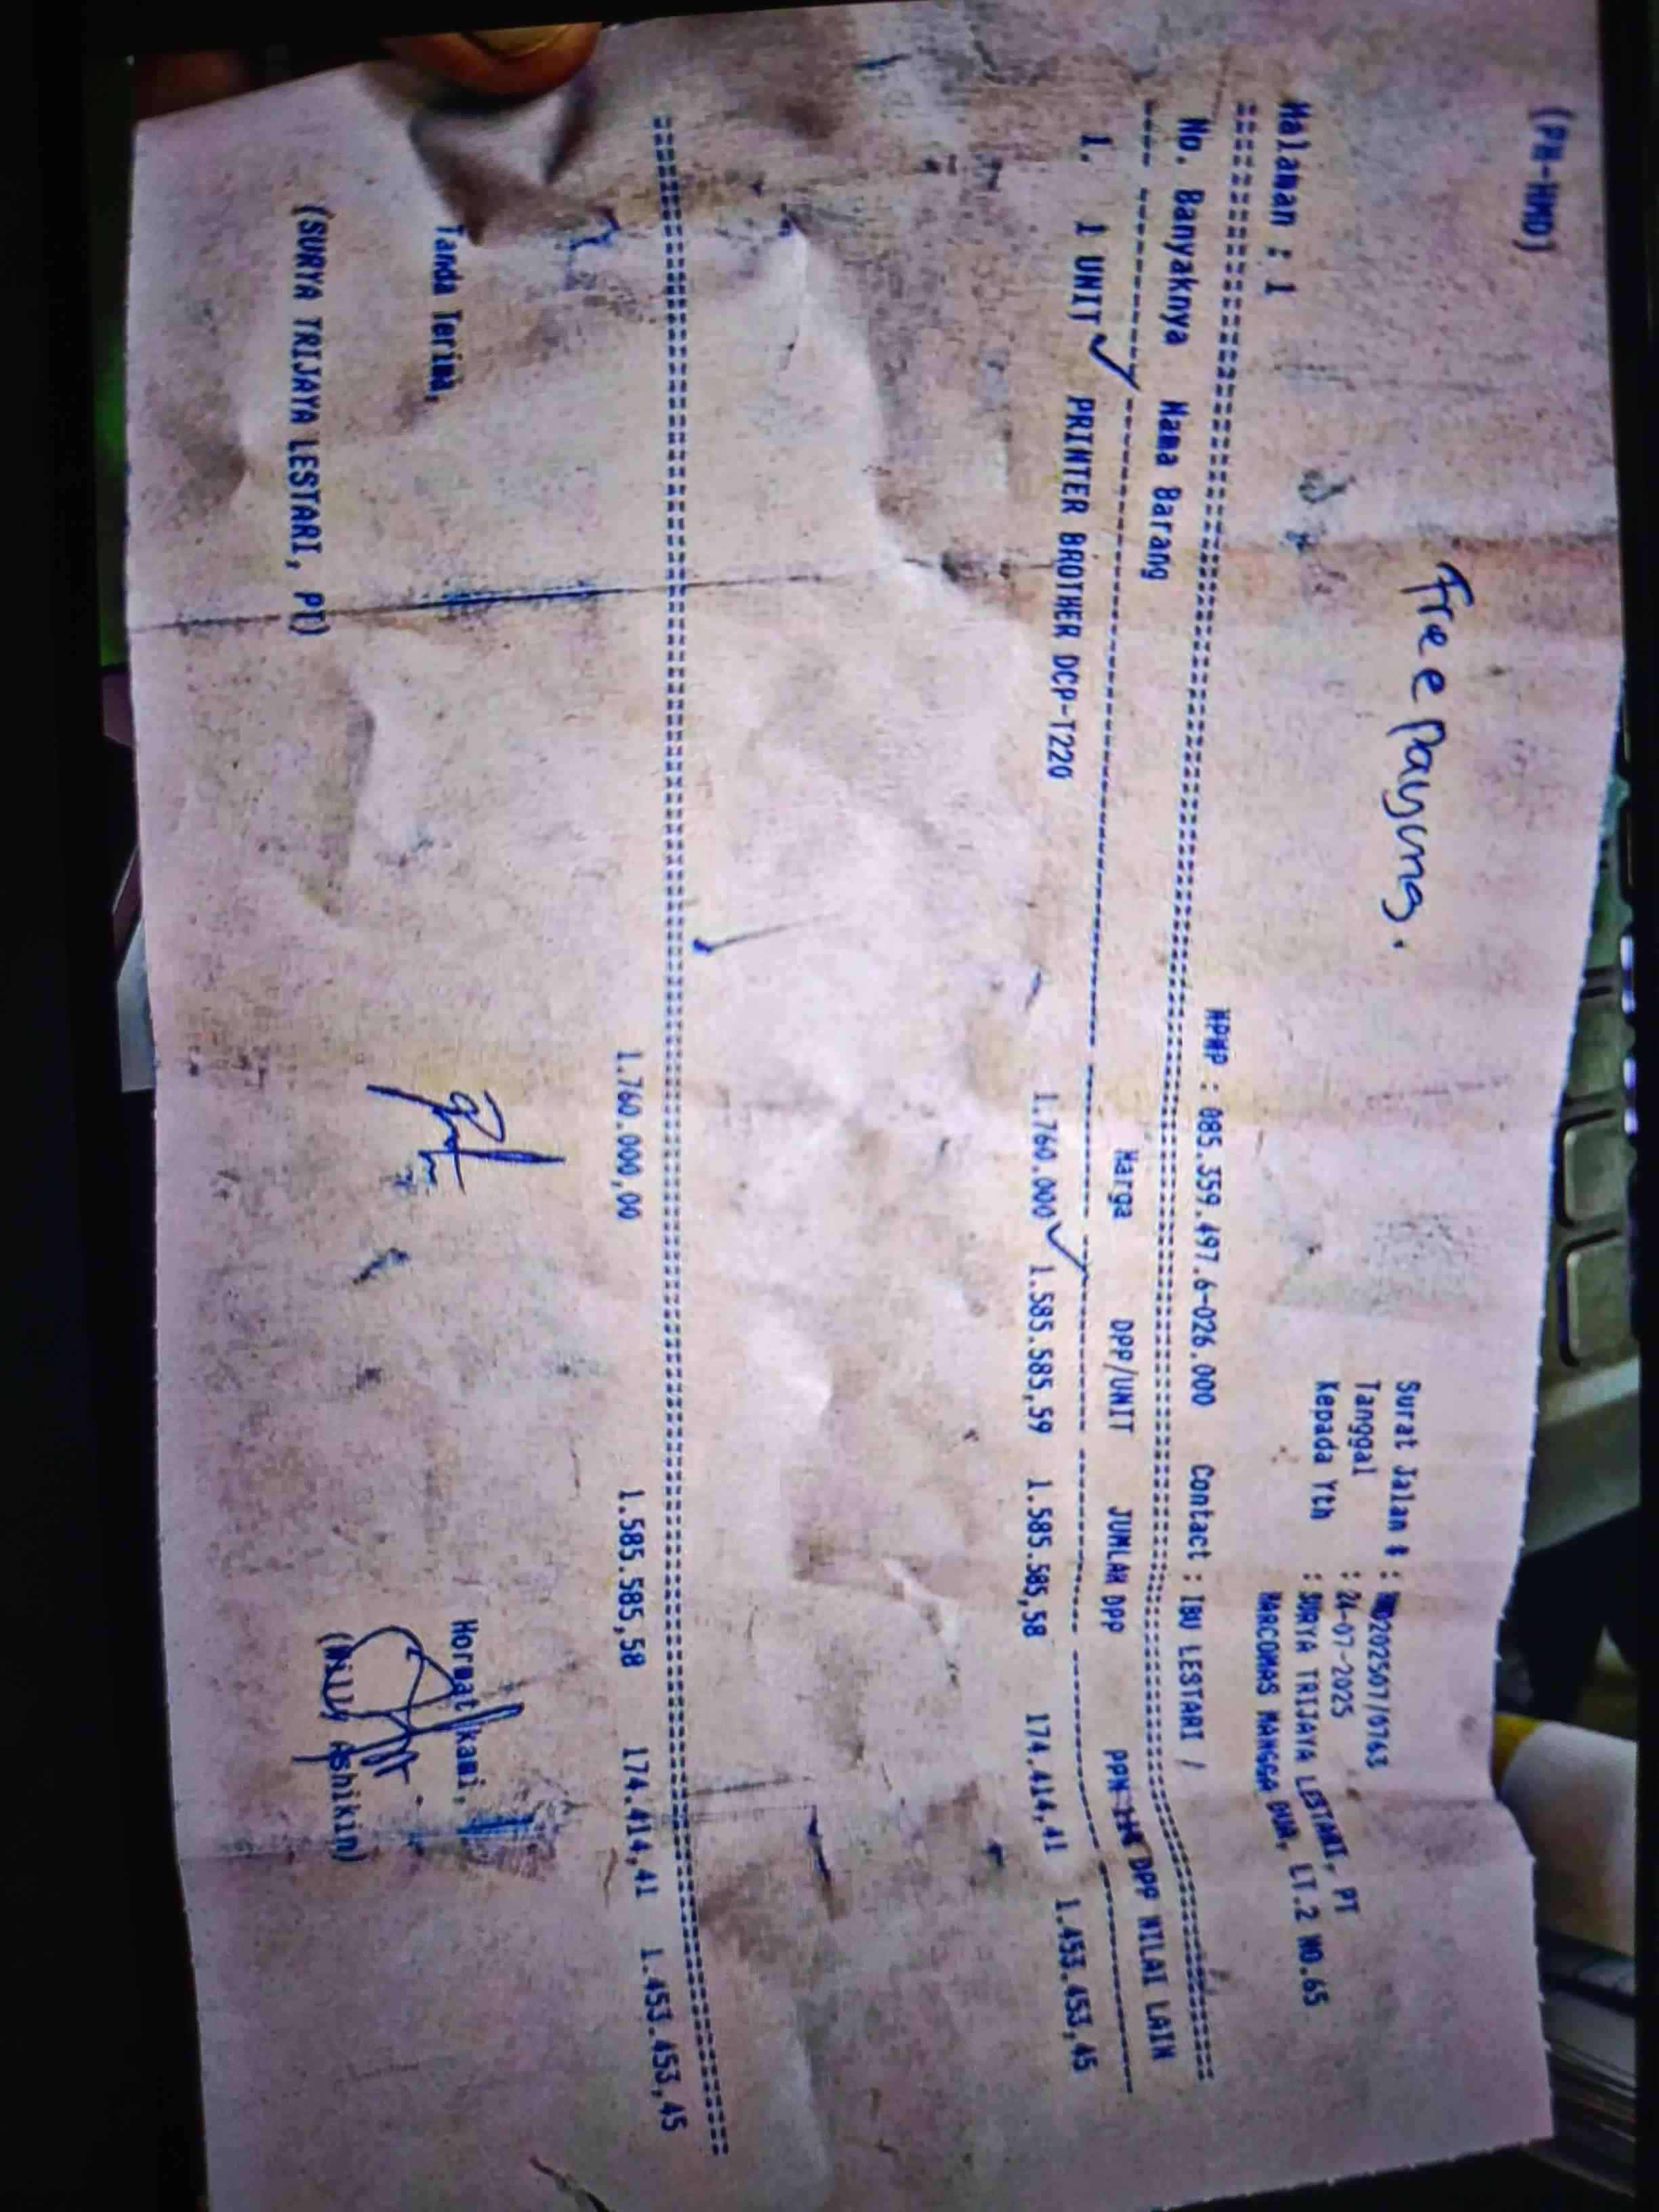 (PB-HMD)
Free Payung.
Surat Jalan # : 202507/0763
Tanggal : 24-07-2025
Kepada Yth : SURYA TRIJAYA LESTARI, PT
HARCOMAS MANGGA DUA, LT.2 NO.65
Halaman : 1
NPWP : 085.359.497.6-026.000 Contact : IBU LESTARI /
No. Banyaknya Nama Barang Harga DPP/UNIT JUMLAH DPP PPN DPP NILAI LAIN
1. 1 UNIT PRINTER BROTHER DCP-T220 1.760.000 1.585.585,59 1.585.585,58 174.414,41 1.453.453,45
1.760.000,00 1.585.585,58 174.414,41 1.453.453,45
Tanda Terima, Hormat kami,
(SURYA TRIJAYA LESTARI, PT)